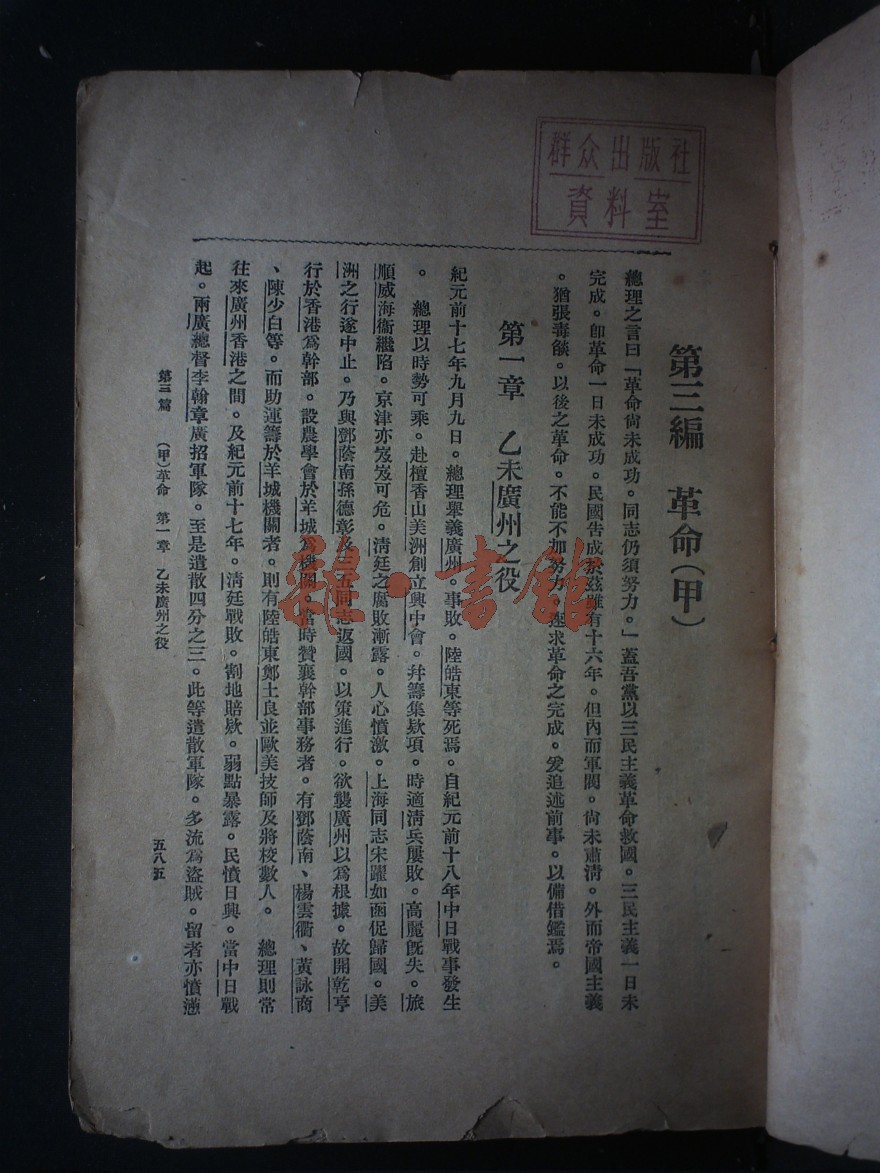 群众出版社
資料室
第三編 革命（甲）
總理之言曰「革命尙未成功。同志仍須努力。」蓋吾黨以三民主義革命救國。三民主義一日未
完成。卽革命一日未成功。民國告成於茲雖有十六年。但內而軍閥。尙未肅淸。外而帝國主義
。猶張毒燄。以後之革命。不能不加努力。速求革命之完成。爰追述前事。以備借鑑焉。
第一章 乙未廣州之役
紀元前十七年九月九日。總理舉義廣州。事敗。陸皓東等死焉。自紀元前十八年中日戰事發生
。 總理以時勢可乘。赴檀香山美洲創立興中會。幷籌集欵項。時適淸兵屢敗。高麗旣失。旅
順威海衞繼陷。京津亦岌岌可危。淸廷之腐敗漸露。人心憤激。上海同志宋躍如函促歸國。美
洲之行遂中止。乃與鄧蔭南孫德彰及三五同志返國。以策進行。欲襲廣州以爲根據。故開乾亨
行於香港爲幹部。設農學會於羊城爲機關。當時贊襄幹部事務者。有鄧蔭南、楊雲衢、黃詠商
、陳少白等。而助運籌於羊城機關者。則有陸皓東鄭士良並歐美技師及將校數人。 總理則常
往來廣州香港之間。及紀元前十七年。淸廷戰敗。割地賠欵。弱點暴露。民憤日興。當中日戰
起。兩廣總督李翰章廣招軍隊。至是遣散四分之三。此等遣散軍隊。多流爲盜賊。留者亦憤懣
第三篇 （甲）革命 第一章 乙未廣州之役
五八五
雜·書館